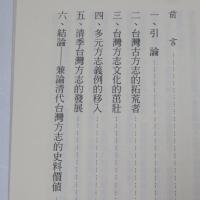 前言
一、引論
二、台灣古方志的拓荒者
三、台灣方志文化的茁壯
四、多元方志義例的移入
五、清季台灣方志的發展
六、結論——兼論清代台灣方志的史料價值